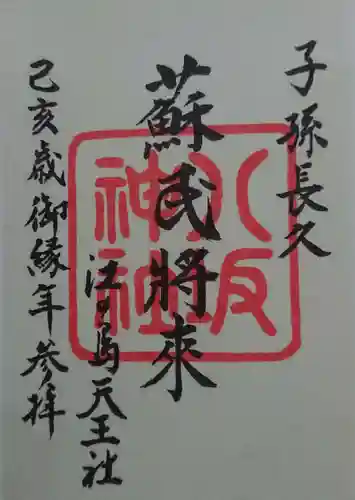 子孫長久
蘇民將來
八坂神社
天王社
己亥歳御縁年参拝